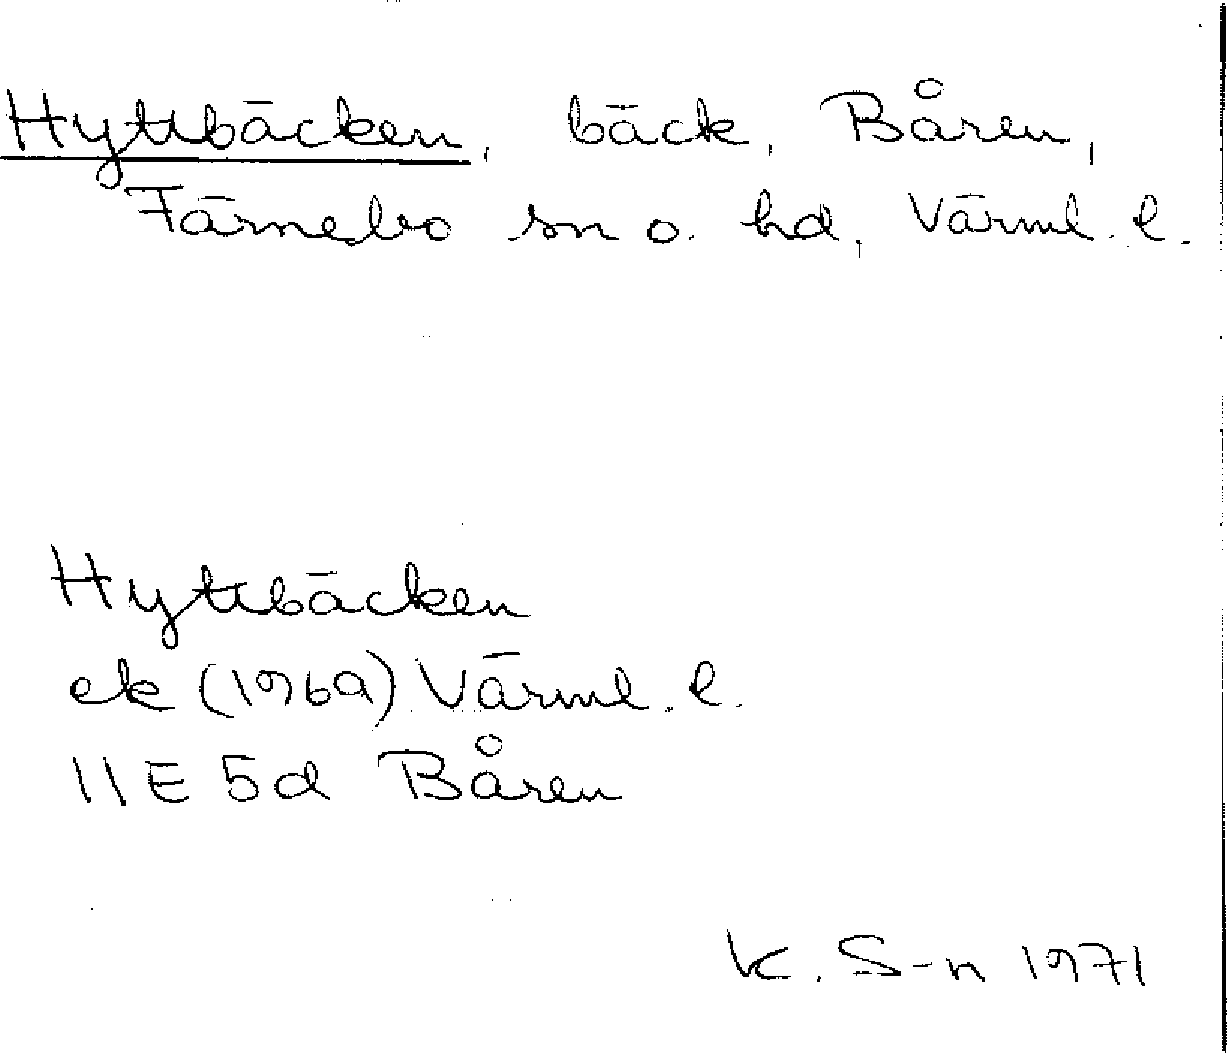 Hyttbäcken, bäck, Båren,
Färnebo sn o. hd, Värml. l.
Hyttbäcken
ek (1969) Värml. l.
11E 5d Båren
K. S-n 1971